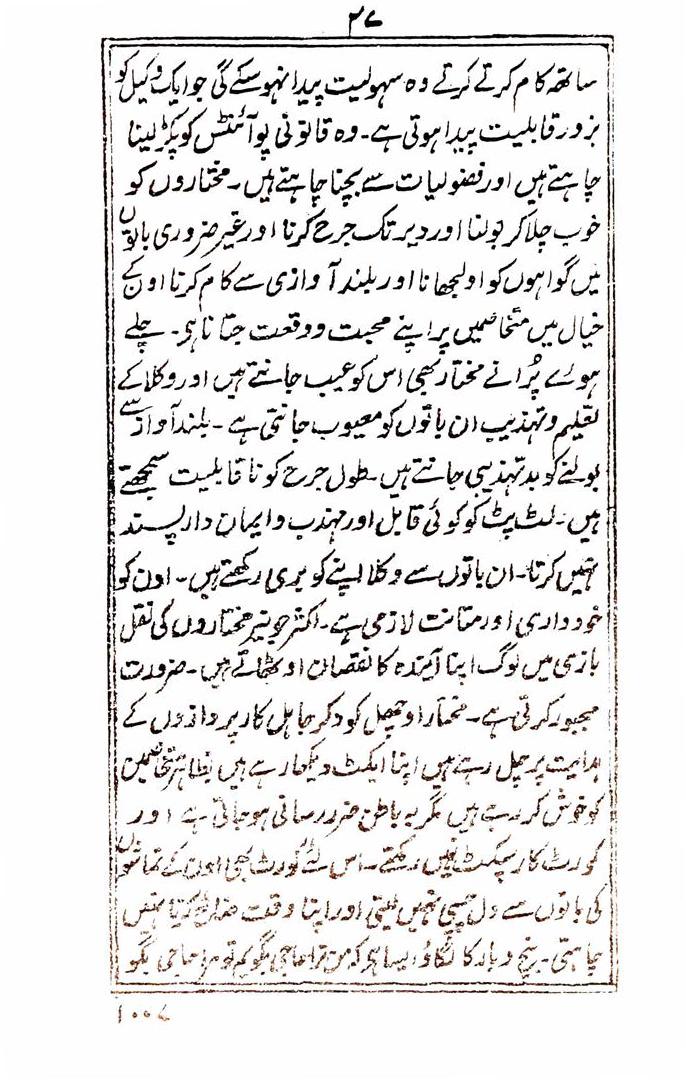 ۳۷
ساتھ کام کرتے کرتے وہ سہولیت پیدا نہو سکے گی جو ایک وکیل کو
بزور قابلیت پیدا ہوتی ہے۔ وہ قانونی پوآئنٹس کو پکڑ لینا
چاہتے ہیں اور فضولیات سے بچنا چاہتے ہیں۔ مختاروں کو
خوب چلا کر بولنا اور دیر تک جرح کرنا اور غیر ضروری باتوں
میں گواہوں کو اولجھانا اور بلند آوازی سے کام کرنا اون کے
خیال میں متخاصمین پر اپنے محبت و وقعت جتانا ہو۔ چلے
ہوے پُرانے مختار بھی اس کو عیب جانتے ہیں اور وکلا کے
تعلیم و تہذیب ان باتوں کو معیوب جانتی ہے۔ بلند آواز سے
بولنے کو بد تہذیبی جانتے ہیں۔ طول جرح کو نا قابلیت سمجھتے
ہیں۔ لٹ پٹ کو کوئی قابل اور مہذب و ایمان دار پسند
نہیں کرتا۔ ان باتوں سے وکلا اپنے کو بری رکھتے ہیں۔ اون کو
خودداری اور متانت لازمی ہے۔ اکثر جونیر مختاروں کی نقل
بازی میں لوگ اپنا آیندہ کا نقصان اوٹھاتے ہیں۔ ضرورت
مجبور کرتی ہے۔ مختار اوچھل کود کر جاہل کارپردازوں کے
ہدایت پر چل رہے ہیں اپنا ایکٹ دیکھا رہے ہیں بظاہر متخاصمین
کو خوش کر رہے ہیں مگر بہ باطن ضرر رسانی ہو جاتی ہے اور
کورٹ کا رسپکٹ نہیں رکھتے۔ اس لئے کورٹ بھی اون کے تماشوں
کی باتوں سے دل چسپی نہیں لیتی اور اپنا وقت ضائع کرنا نہیں
چاہتی۔ بنچ و بار کا لگاؤ ایسا ہو کہ من ترا حاجی بگویم تو مرا حاجی بگو
۱۰۰۷